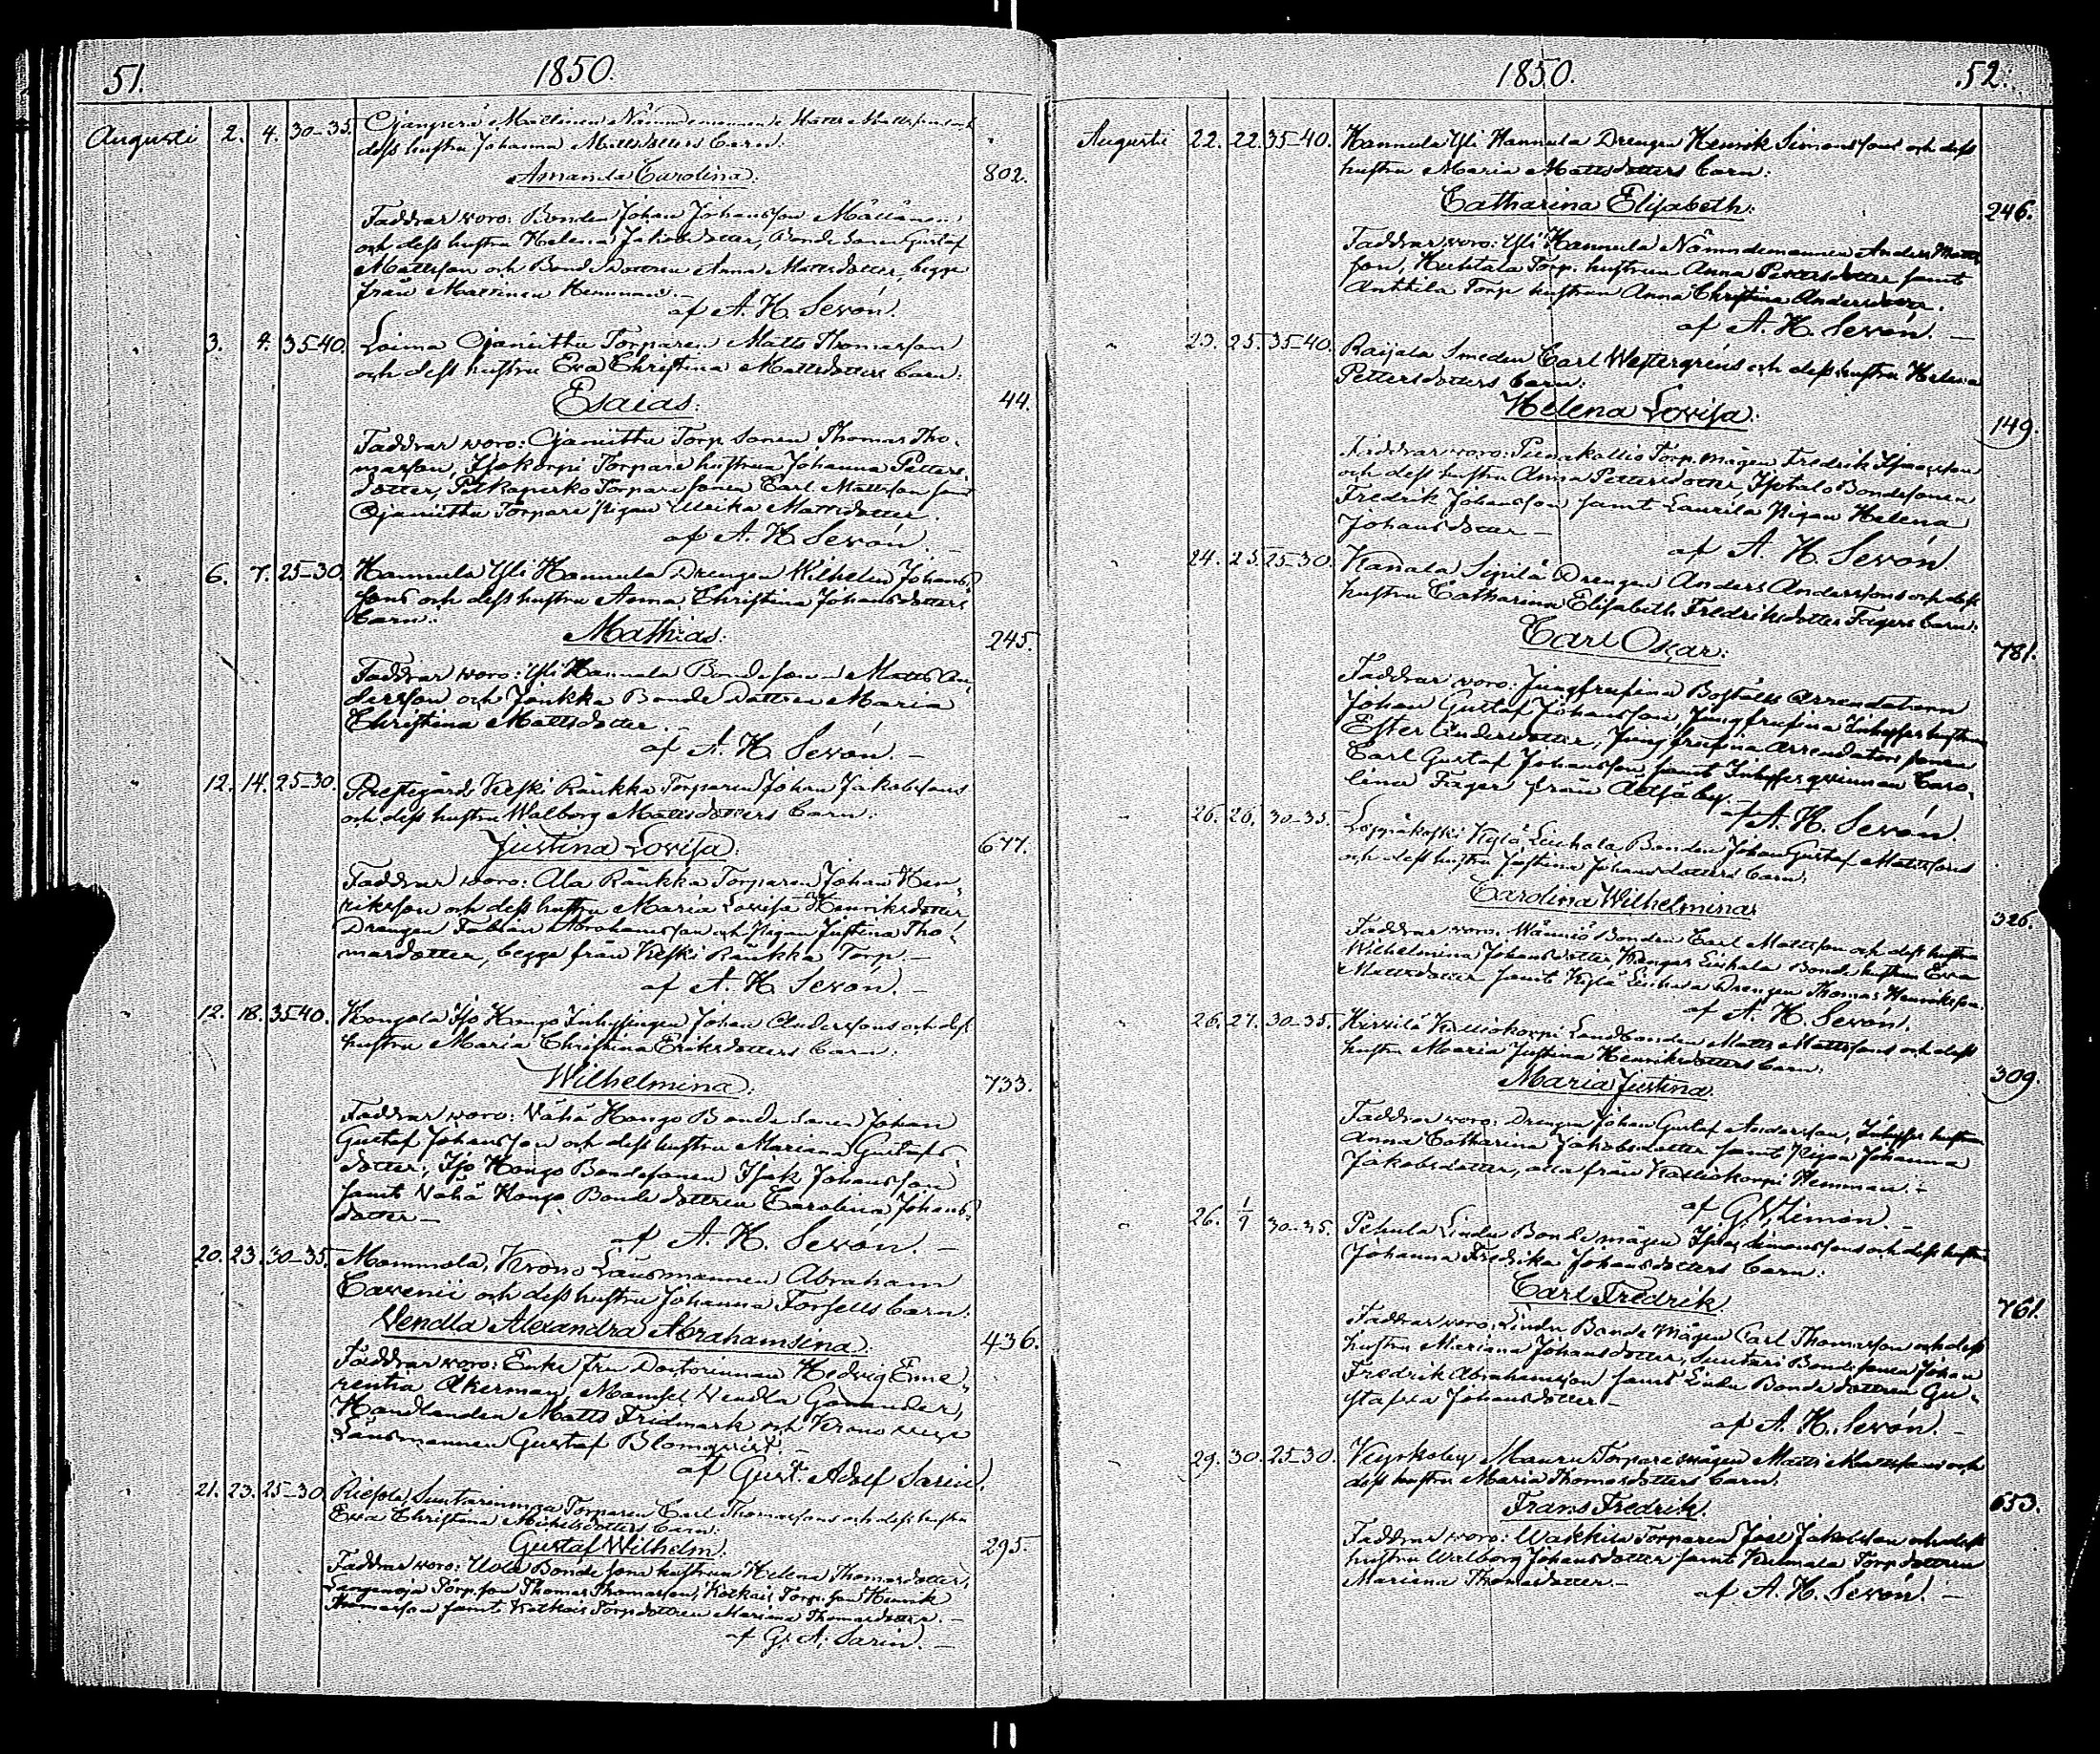 51. 1850.
Augusti 2. 4. 30-35. Ojanperä Mattinen Nämndemannen Matts Mattssons och
dess hustru Johanna Mattsdotters barn:
Amanda Carolina. 802.
Faddrar woro: Bonden Johan Johansson Mällänen
och dess hustru Helena Jakobsdotter, Bondesonen Gustaf
Mattsson och Bond Dottren Anna Mattsdotter, begge
från Mattinen Hemman. –
af A. H. Sevón.
3. 4. 35-40. Loima Ojanüttu Torparen Matts Thomasson
och dess hustru Eva Christina Mattsdotters barn:
Esaias. 44.
Faddrar woro: Ojanüttu Torp. Sonen Thomas Tho-
masson, Isokorpi Torpare hustrun Johanna Petters-
dotter, Torpare sonen Carl Mattsson samt
Ojanüttu Torpare Pigan Ulrika Mattsdotter.
af A. H. Sevón. –
6. 7. 25-30. Hannula Yli Hannula Drengen Wilhelm Johans-
sons och dess hustru Anna Christina Johansdotters
barn:
Mathias. 245.
Faddrar woro: Yli Hannula Bondesonen Matts An-
dersson och Jonkka Bonde Dottren Maria
Christina Mattsdotter. –
af A. H. Sevón. –
12. 14. 25-30. Prestgårds Keski Räukka Torparen Johan Jakobssons
och dess hustru Walborg Mattsdotters barn:
Justina Lovisa. 677.
Faddrar woro: Ala Räukka Torparen Johan Hen-
riksson och dess hustru Maria Lovisa Henriksdotter,
Drengen Fabian Abrahamsson och Pigan Justina Tho-
masdotter, begge från Keski Räukka Torp. –
af A. H. Sevón. –
12. 18. 35-40. Kongola Iso Kongo Inhysingen Johan Anderssons och dess
hustru Maria Christina Eriksdotters barn:
Wilhelmina. 733.
Faddrar woro: Vähä Kongo Bonde Sonen Johan
Gustaf Johansson och dess hustru Mariana Gustafs-
dotter, Iso Kongo Bondesonen Isak Johansson
samt Vähä Kongo Bonde dottren Carolina Johans-
dotter –
af A. H. Sevón. –
20. 23. 30-35. Mommola, Krono Länsmannen Abraham
Cavenii och dess hustru Johanna Forsells barn:
Vendla Alexandra Abrahamsina. 436.
Faddrar woro: Enke Fru Doctorinnan Hedvig Eme-
rentia Åkerman, Mamsel Vendla Ganander,
Handlanden Matts Fridmark och Krono vice
Länsmannen Gustaf Blomqvist. –
af Gust. Adolf Sarin.
21. 23. 25-30. Riesola, Suntarinmaa Torparen Carl Thomassons och dess hustru
Eva Christina Michelsdotters barn:
Gustaf Wilhelm. 295.
Faddrar woro: Uola Bonde sons hustrun Helena Thomasdotter,
Langenoja Torp. son Thomas Thomasson, Katkais Torp. son Henrik
Thomasson samt Katkais Torp dottren Mariana Thomasdotter. –
af G. A. Sarin. –
1850. 52.
Augusti 22. 22. 35-40. Hannula Yli Hannula Drengen Henrik Simonssons och dess
hustru Maria Mattsdotters barn:
Catharina Elisabeth. 246.
Faddrar woro: Yli Hannula Nämndemannen Anders Matts-
son, Huhtala Torp. hustrun Anna Pettersdotter samt
Anttila Torp hustrun Anna Christina Andersdotter.
af A. H. Sevón. –
23. 25. 35-40. Raijala Smeden Carl Westergréns och dess hustru Helena
Pettersdotters barn:
Helena Lovisa. 149.
Faddrar woro: Punakallio Torp. mågen Fredrik Isaksson
och dess hustru Anna Pettersdotter, Isotalo Bondesonen
Fredrik Johansson samt Laurila Pigan Helena
Johansdotter –
af A. H. Sevón.
24. 25. 25-30. Kanala Sipilä Drengen Anders Anderssons och dess
hustru Catharina Elisabeth Fredriksdotter Fagers barn:
Carl Oscar. 781.
Faddrar woro: Jungfrusina Boställs Arrendatorn
Johan Gustaf Johansson, Jungfrusina Inhyses hustrun
Ester Andersdotter, Jungfrusina arrendators sonen
Carl Gustaf Johansson samt Inhyses qvinnan Caro-
lina Fager från by. –
af A. H. Sevón.
26. 26. 30-35. Loppäkoski Kylä Liuhala Bonden Johan Gustaf Mattssons
och dess hustru Justina Johansdotters barn:
Carolina Wilhelmina. 326.
Faddrar woro: Männiö Bonden Carl Mattsson och dess hustru
Wilhelmina Johansdotter, Liuhala Bonde hustrun Eva
Mattsdotter samt Kylä Liuhala Drengen Thomas Henriksson.
af A. H. Sevón.
26. 27. 30-35. Hirvilä Kalliokorpi Landbonden Matts Mattssons och dess
hustru Maria Justina Henriksdotters barn:
Maria Justina. 309.
Faddrar woro: Drengen Johan Gustaf Andersson, Inhyses hustrun
Anna Catharina Jakobsdotter samt Pigan Johanna
Jakobsdotter, alla från Kalliokorpi Hemman. –
af G. W. Limón. –
26. 1/9 30-35. Pehula Lindu Bondemågen Isaac Simonssons och dess hustru
Johanna Fredrika Johansdotters barn:
Carl Fredrik 761.
Faddrar woro: Lindu Bonde Mågen Carl Thomasson och dess
hustru Mariana Johansdotter, Suutari Bondesonen Johan
Fredrik Abrahamsson samt Lindu Bonde dottren Gu-
stafva Johansdotter –
af A. H. Sevón. –
29. 30. 25-30. Kuyskoby Mauru Torpare mågen Matts Mattssons och
dess hustru Maria Thomasdotters barn:
Frans Fredrik. 653.
Faddrar woro: Wakkila Torparen Joel Jakobsson och dess
hustru Walborg Johansdotter samt Kulmala Torp dottren
Mariana Thomasdotter. –
af A. H. Sevón. –